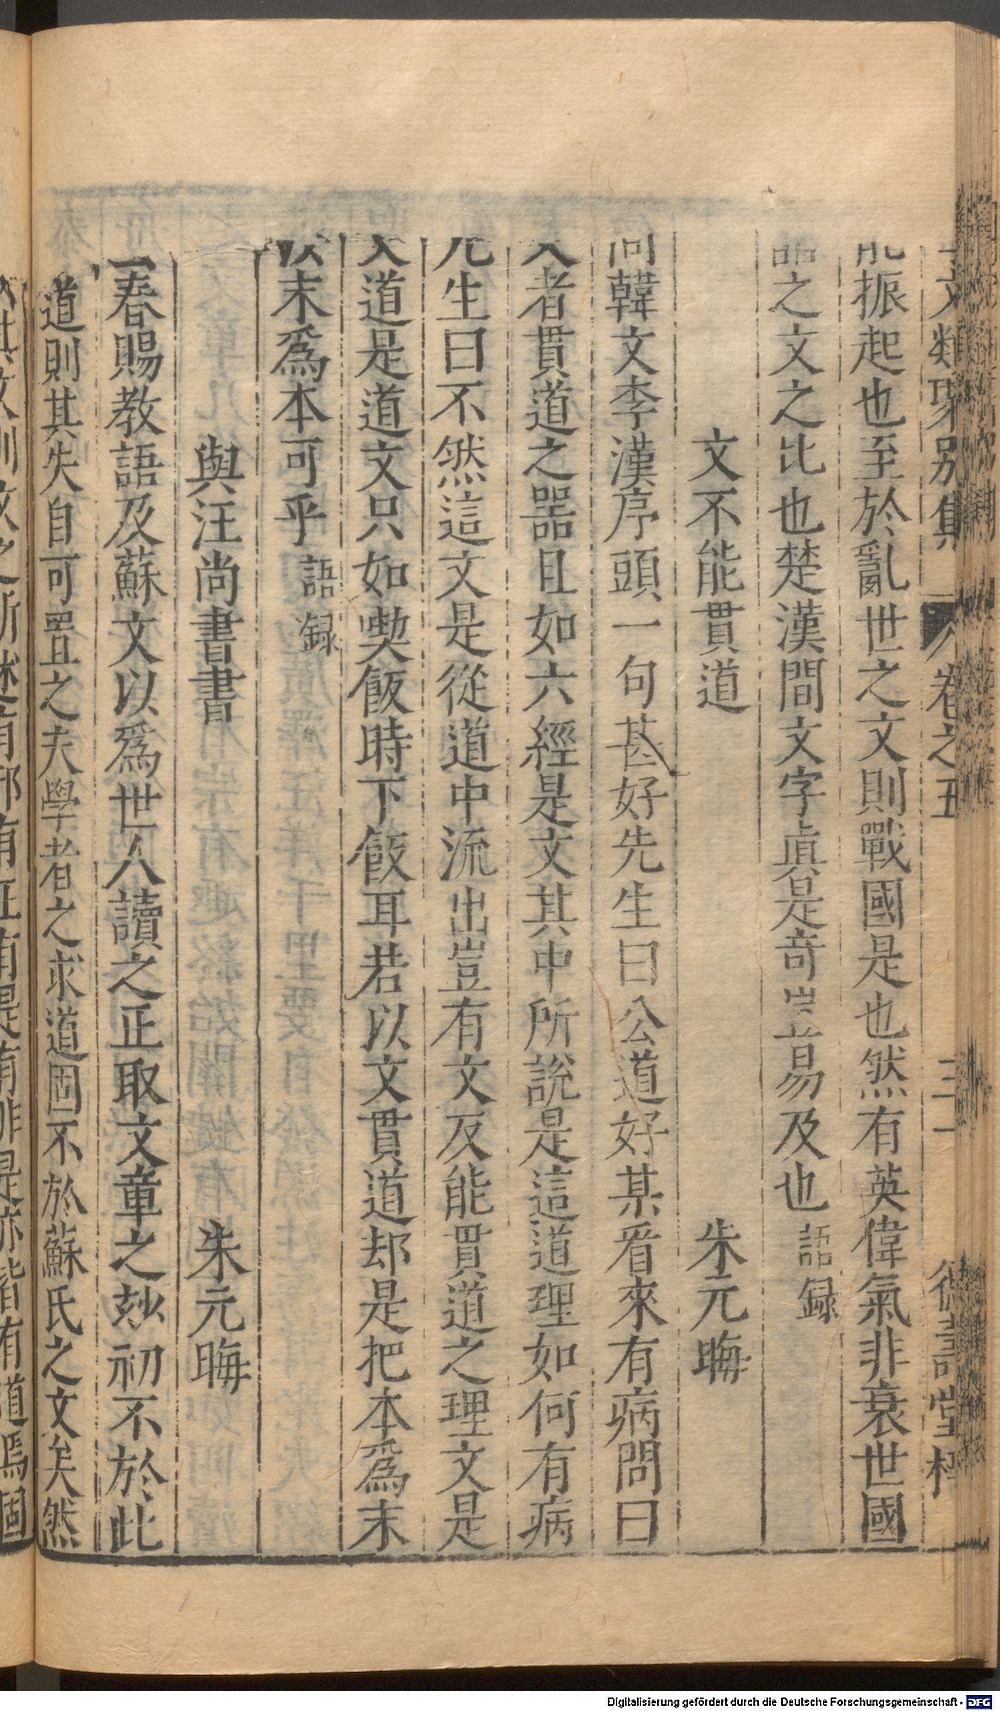 文類聚別集 卷之五 三十
能振起也至於亂世之文則戰國是也然有英偉氣非衰世國
語之文之比也楚漢間文字眞是奇豈易及也 語録
文不能貫道 朱元晦
問韓文李漢序頭一句甚好先生曰公道好某看來有病問曰
文者貫道之器且如六經是文其中所說是這道理如何有病
先生曰不然這文是從道中流出豈有文反能貫道之理文是
文道是道文只如喫飯時下飯耳若以文貫道却是把本爲末
以末爲本可乎 語録
與汪尚書書 朱元晦
春賜教語及蘇文以爲世人讀之正取文章之玅初不於此
道則其失自可置之夫學者之求道固不於蘇氏之文矣然
Digitalisierung gefördert durch die Deutsche Forschungsgemeinschaft - DFG